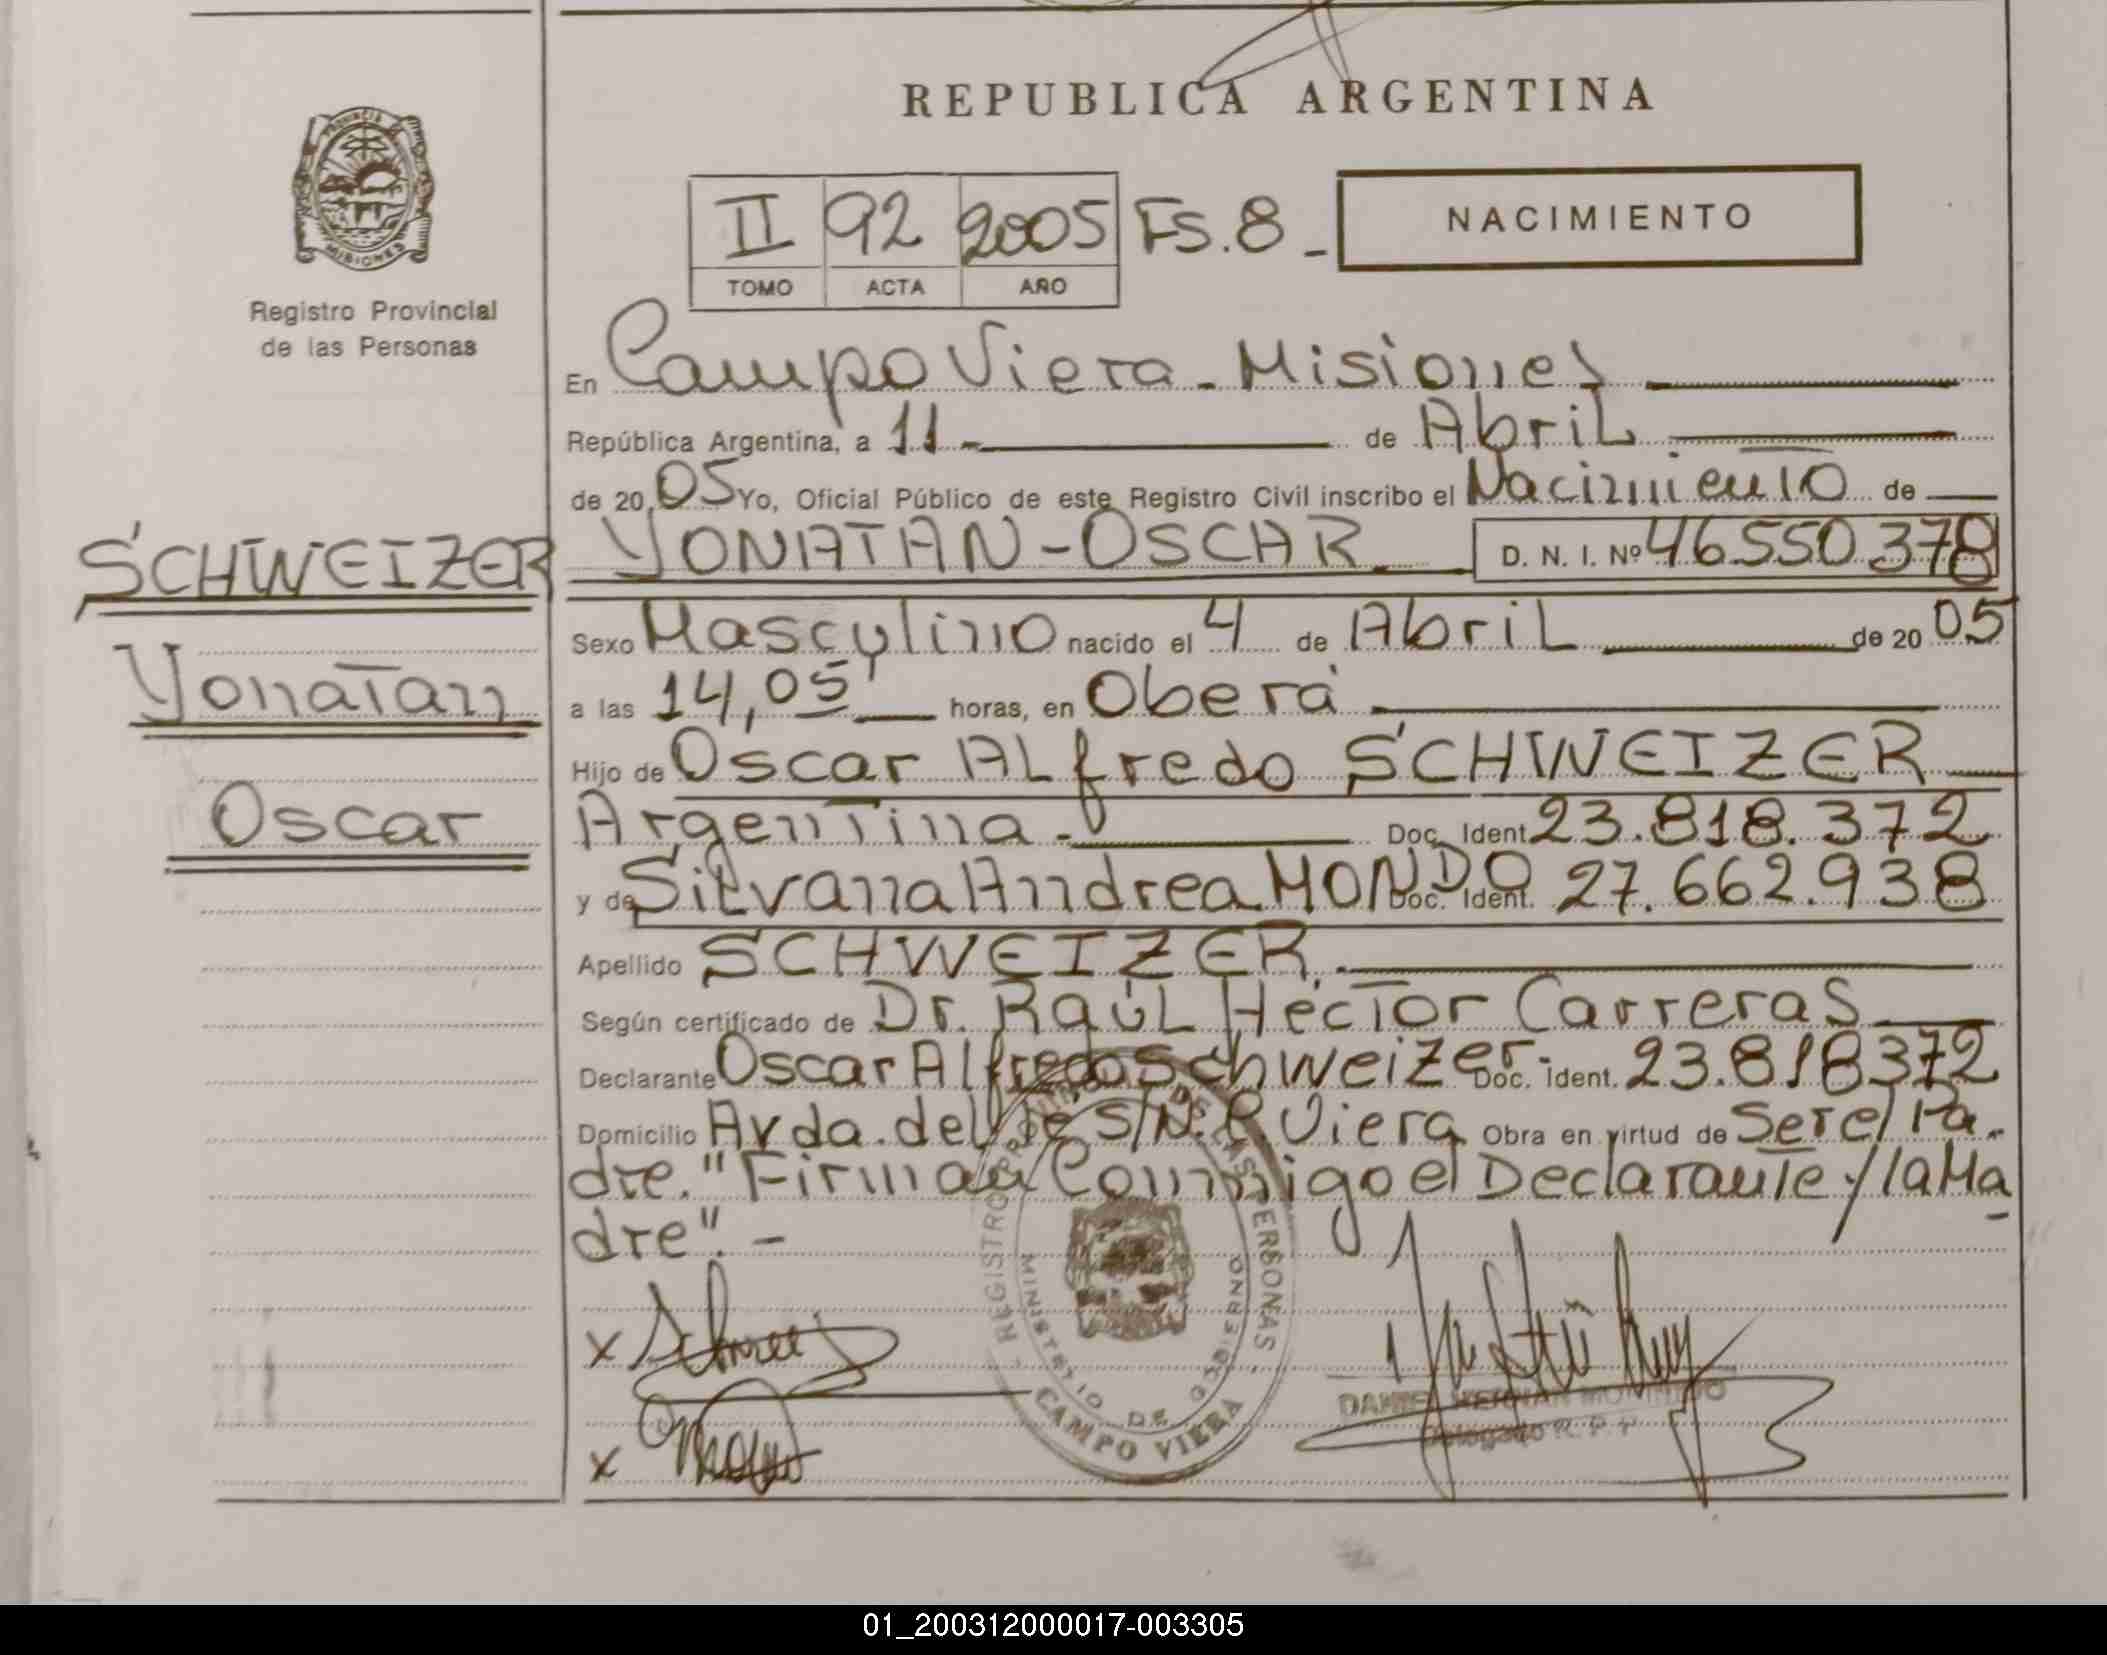 REPUBLICA ARGENTINA
PROVINCIA DE MISIONES
Registro Provincial
de las Personas
II 92 2005 Fs. 8 -
TOMO ACTA AÑO
NACIMIENTO
En Campo Viera - Misiones
República Argentina, a 11 - de Abril
de 20 05 Yo, Oficial Público de este Registro Civil inscribo el Nacimiento de
SCHWEIZER
Yonatan
Oscar
YONATAN - OSCAR D. N. I. Nº 46.550.378
Sexo Masculino nacido el 4 de Abril de 20 05
a las 14,05' horas, en Oberá
Hijo de Oscar Alfredo SCHWEIZER
Argentina - Doc. Ident. 23.818.372
y de Silvana Andrea MONDO Doc. Ident. 27.662.938
Apellido SCHWEIZER -
Según certificado de Dr. Raúl Héctor Carreras
Declarante Oscar Alfredo Schweizer - Doc. Ident. 23.818372
Domicilio Avda. del Té S/N. C. Viera Obra en virtud de Ser el Pa-
dre. "Firman Conmigo el Declarante y la Ma-
dre". -
REGISTRO PROVINCIAL DE LAS PERSONAS
MINISTERIO DE GOBIERNO
CAMPO VIERA
x
x
DANIEL HERNAN
Delegado R. P. P.
01_200312000017-003305